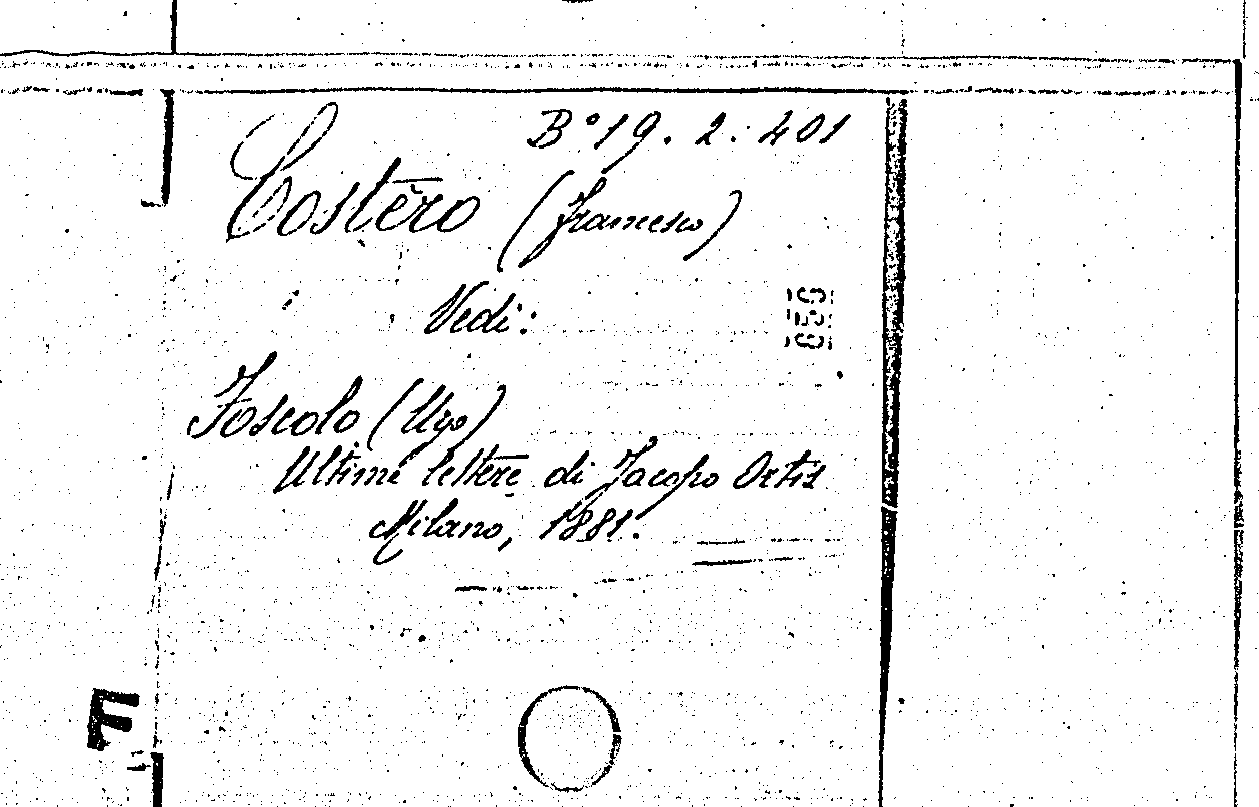 B° 19. 2. 401
Costèro (Francesco)
Vedi:
Foscolo (Ugo)
Ultime lettere di Jacopo Ortis
Milano, 1881.
F